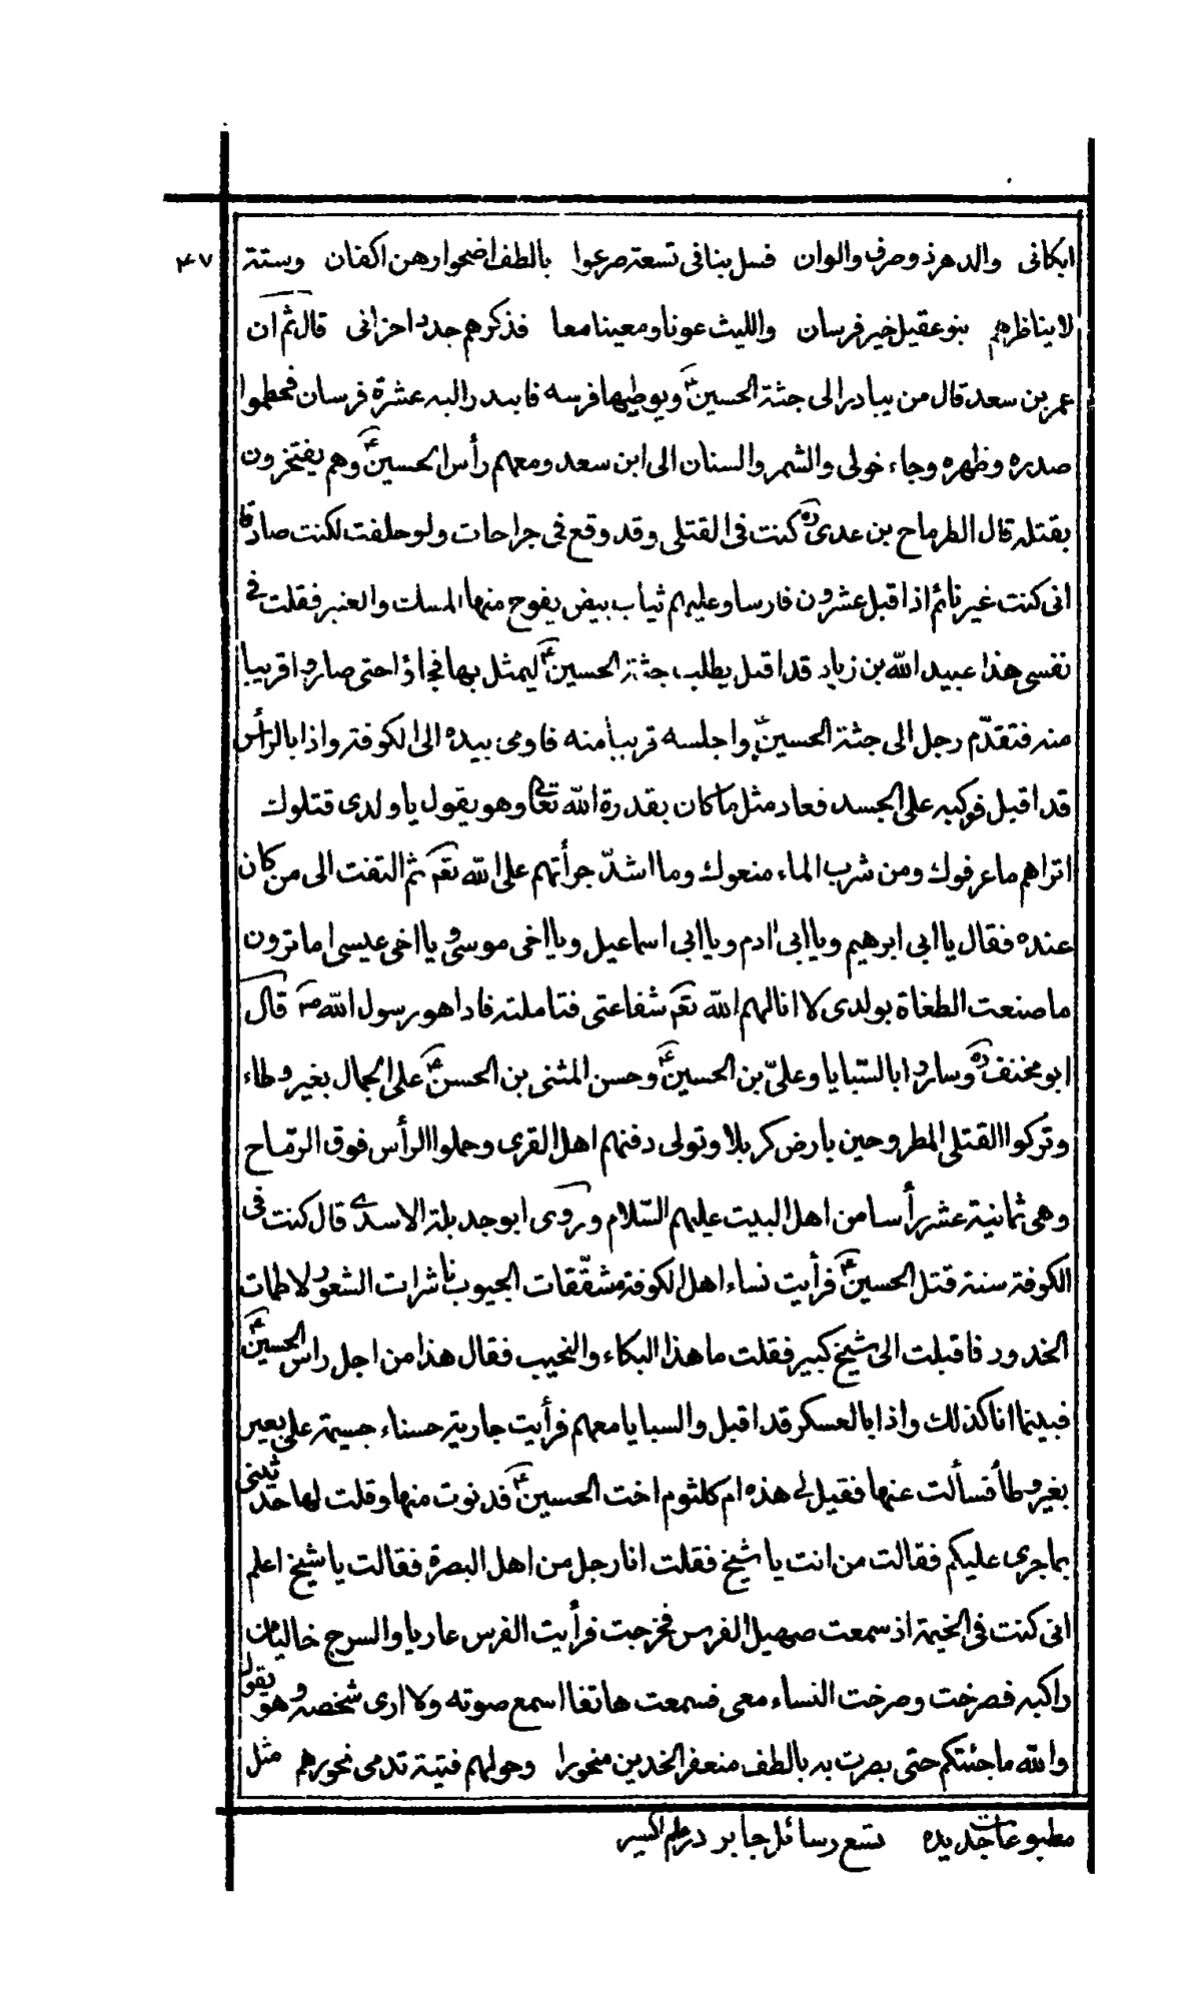 ابكانى والدهر ذو صرف والوان فسل بنا فى تسعة صرعوا بالطف اضحوا رهن اكفان وستة
۴۷
لا يناظرهم بنو عقيل خير فرسان والليث عونا ومعينا معا فذكرهم جدد احزانى قال ثم ان
عمر بن سعد قال من يبادر الى جثة الحسين ع ويوطيها فرسه فابتدر اليه عشرة فرسان فحطموا
صدره وظهره وجاء خولى والشمر والسنان الى ابن سعد ومعهم رأس الحسين ع وهم يفتخرون
بقتله قال الطرماح بن عدى ره كنت فى القتلى وقد وقع فى جراحات ولو حلفت لكنت صادقا
انى كنت غير نائم اذ اقبل عشرون فارسا وعليهم ثياب بيض يفوح منها المسك والعنبر فقلت فى
نفسى هذا عبيد الله بن زياد قد اقبل يطلب جثة الحسين ع ليمثل بها فجاؤا حتى صاروا قريبا
منه فتقدّم رجل الى جثة الحسين ع واجلسه قريبا منه فاومى بيده الى الكوفة واذا بالرأس
قد اقبل فركبه على الجسد فعاد مثل ما كان بقدرة الله تعالى وهو يقول يا ولدى قتلوك
اتراهم ما عرفوك ومن شرب الماء منعوك وما اشدّ جرأتهم على الله تعم ثم التفت الى من كان
عنده فقال يا ابى ابرهيم ويا ابى ادم ويا ابى اسماعيل ويا اخى موسى ويا اخى عيسى اما ترون
ما صنعت الطغاة بولدى لا انالهم الله تعم شفاعتى فتاملته فاذا هو رسول الله ص قال
ابو مخنف ره وساروا بالسّبايا وعلىّ بن الحسين ع وحسن المثنى بن الحسن ع على الجمال بغير وطاء
وتركوا القتلى المطروحين بارض كربلا وتولى دفنهم اهل القرى وحملوا الرأس فوق الرّماح
وهى ثمانية عشر رأسا من اهل البيت عليهم السّلام وروى ابو جديلة الاسدى قال كنت فى
الكوفة سنة قتل الحسين ع فرأيت نساء اهل الكوفة مشقّقات الجيوب ناشرات الشعور لاطمات
الخدود فاقبلت الى شيخ كبير فقلت ما هذا البكاء والنحيب فقال هذا من اجل راس الحسين ع
فبينما انا كذلك واذا بالعسكر قد اقبل والسبايا معهم فرأيت جارية حسناء جسيمة على بعير
بغير وطأ فسألت عنها فقيل لى هذه ام كلثوم اخت الحسين ع فدنوت منها وقلت لها حدثينى
بما جرى عليكم فقالت من انت يا شيخ فقلت انا رجل من اهل البصرة فقالت يا شيخ اعلم
انى كنت فى الخيمة اذ سمعت صهيل الفرس فخرجت فرأيت الفرس عاريا والسرج خاليا من
راكبه فصرخت وصرخت النساء معى فسمعت هاتفا اسمع صوته ولا ارى شخصه وهو يقول
والله ما جئتكم حتى بصرت به بالطف منعفر الخدين منحورا وحولهم فتية تدمى نحورهم مثل
مطبوعات جديده تسع رسائل جابر در علم اكسير